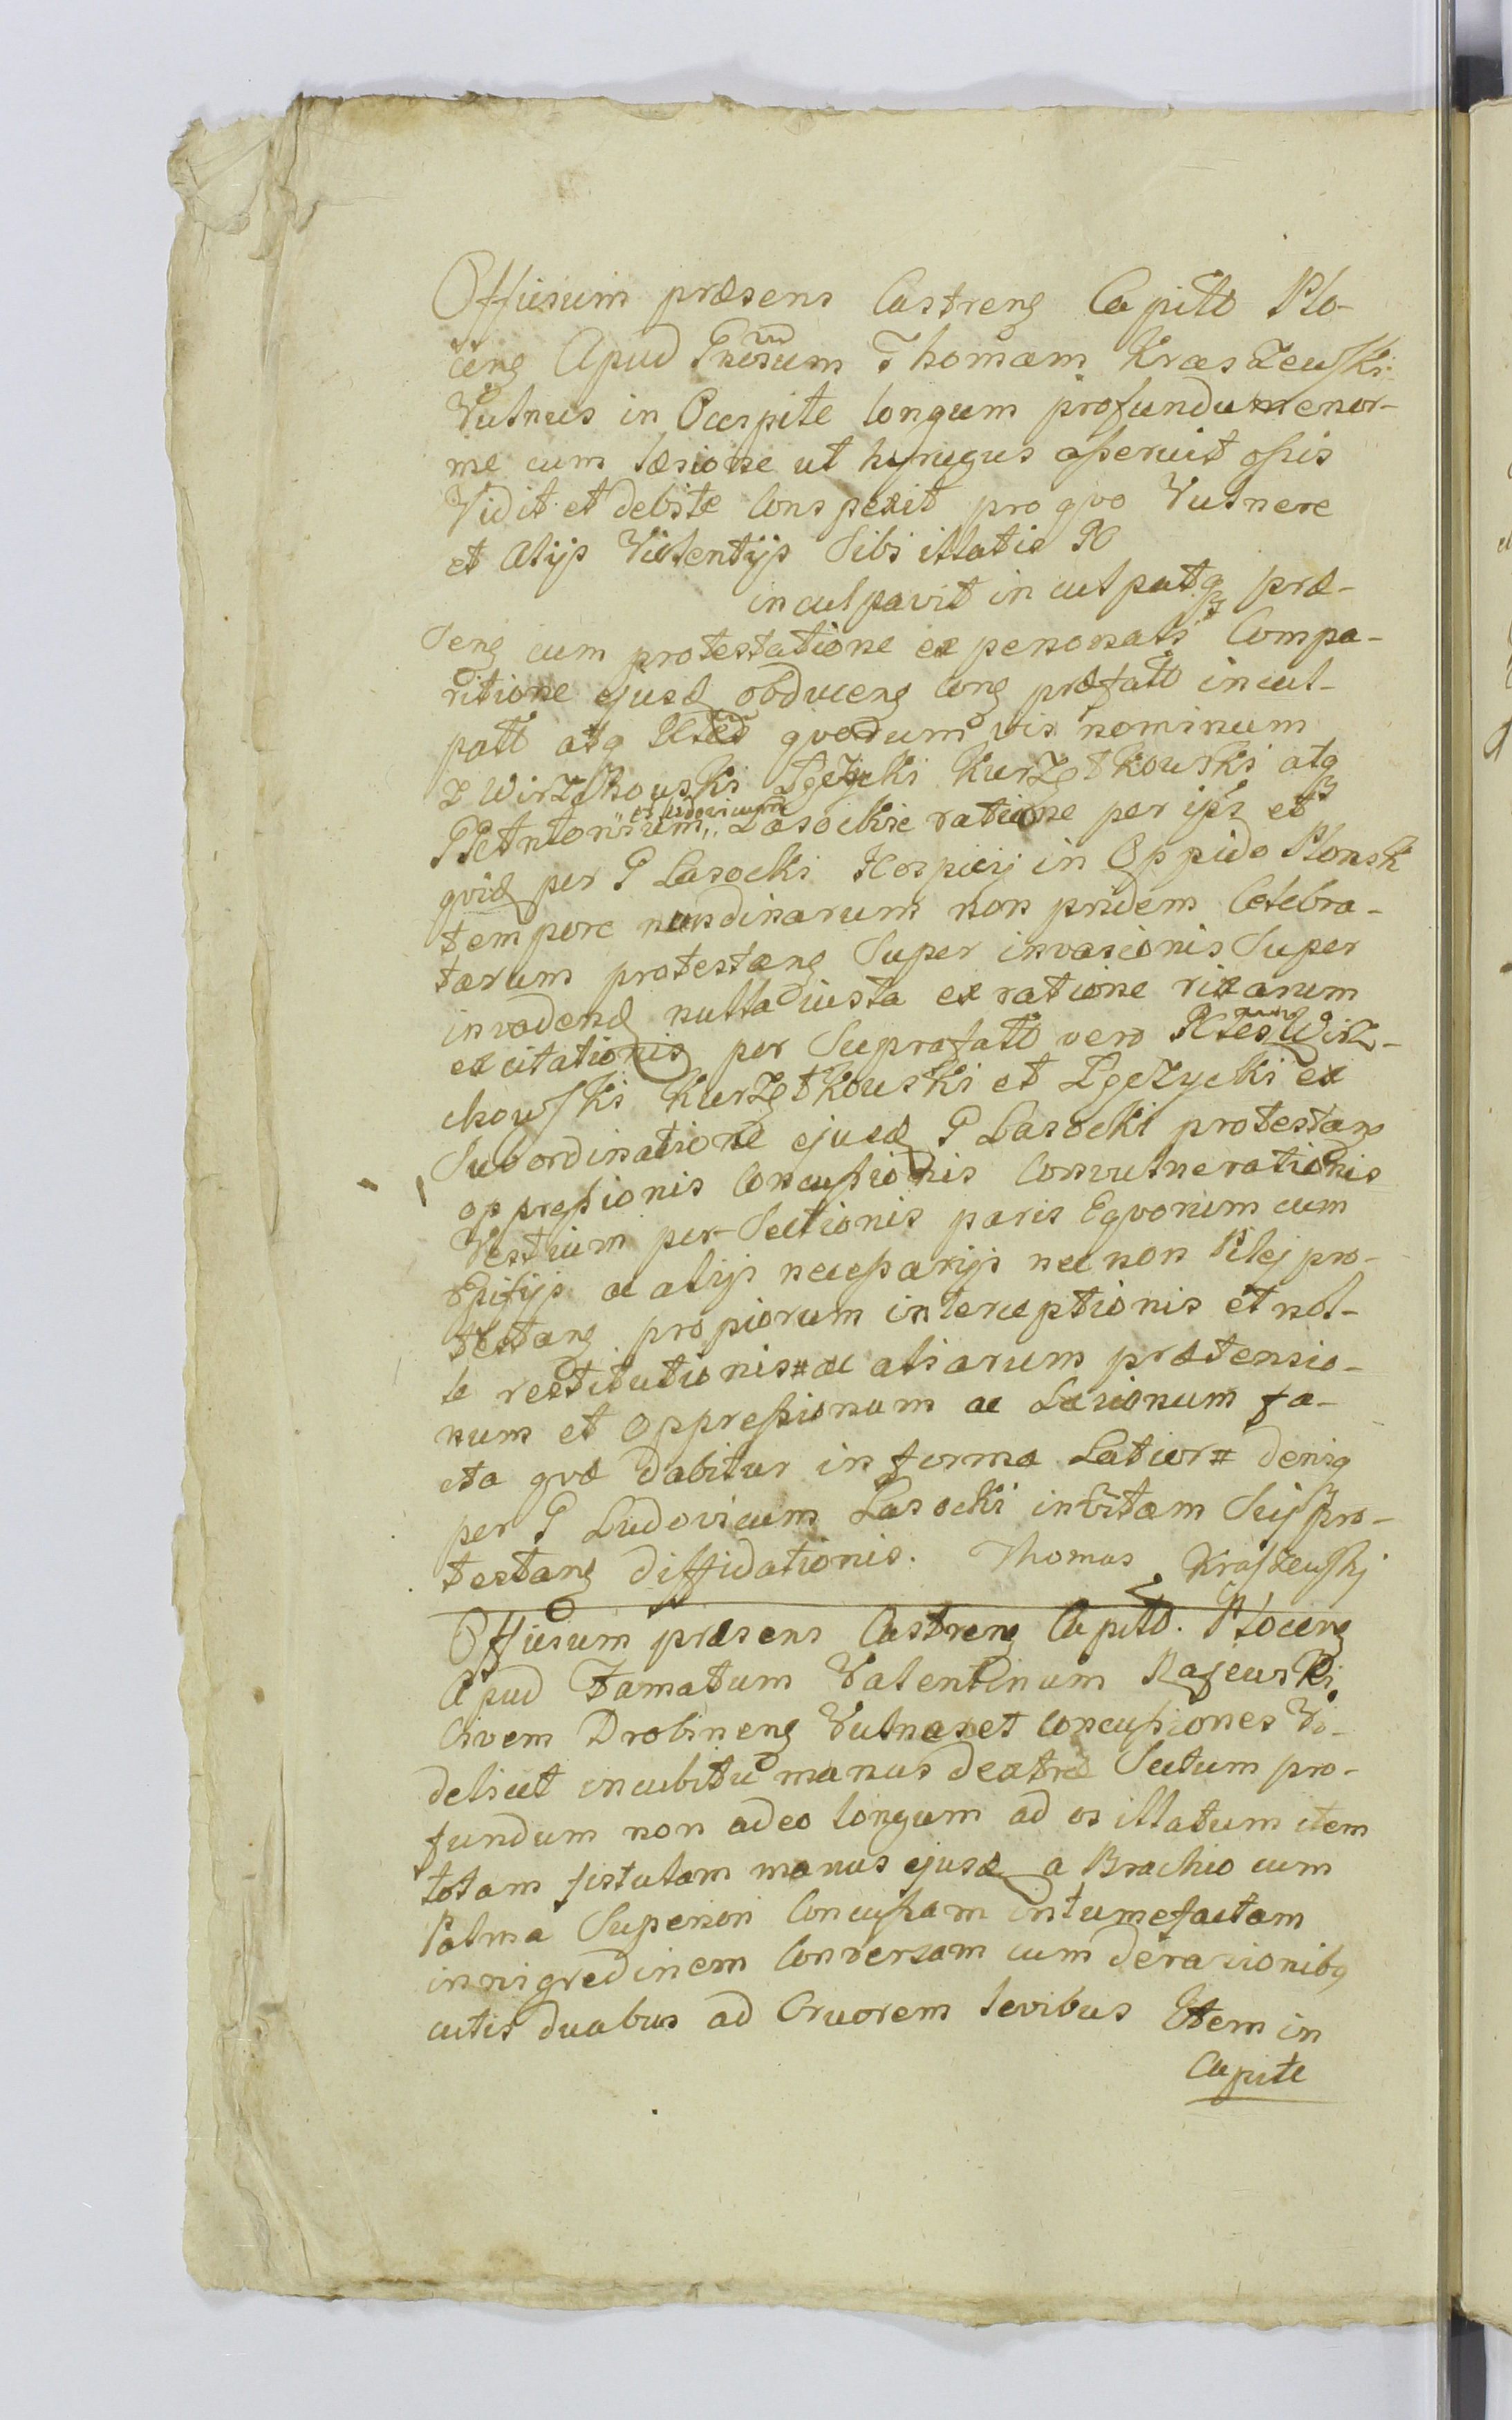 Officium præsens Castreng Capitl Plo-
ceng Apud Gnosum Thomam Kraszewski
Vulnus in Occipite longum profundum enor-
me cum læsione ut hyrugus asseruit ossis
Vidit et debite Conspexit pro qvo Vulnere
et Alijs Violentijs Sibi illatis
inculpavit inculpatq præ-
Seng cum protestatione ex personali Compa-
ritione ejusd obduceng præfatt incul-
patt atq qvorum vis nominum
Kurzętkowski atq
et Ludovicum
Lasockie ratione per ips et
qvid per G Lasocki Hospicij in Oppido Plonsk
tempore nundinarum non pridem Celebra-
tarum protestang Super invasionis Super
invadend nulla iusta ex ratione rixarum
excitationis per Suprafatt vero Wirz-
chowski Kurzętkowski et Zgężycki ex
Subordinatione ejusd G Lasocki protestang
oppressionis Concussionis Convulnerationis
Vestium per-Sectionis paris Eqvorum cum
Epifijs ac alijs necessarijs nec non Pilej pro-
testang propiorum interceptionis et nol-
le restitutionis # ac aliarum prætensio-
num et oppressionum ac Læsionum fa-
cta qvæ dabitur in forma Latior # deniq
per G Ludovicum Lasocki in Vitam Sui pro-
testang diffidationis. Thomas Kraszewski
Officium præsens Castreng Capitl. Ploceng
Apud Famatum Valentinum Rajewski
Civem Drobineng Vulnus et Concussiones Vi-
delicet in cubitu manus dextræ Sectum pro-
fundum non adeo longum ad os illatum item
totam fistulam manus ejusd a Brachio cum
Palma Superiori Concussam intumefactam
in nigredinem Conversam cum derasionibq
cutis duabus ad Cruorem levibus Item in
Capite